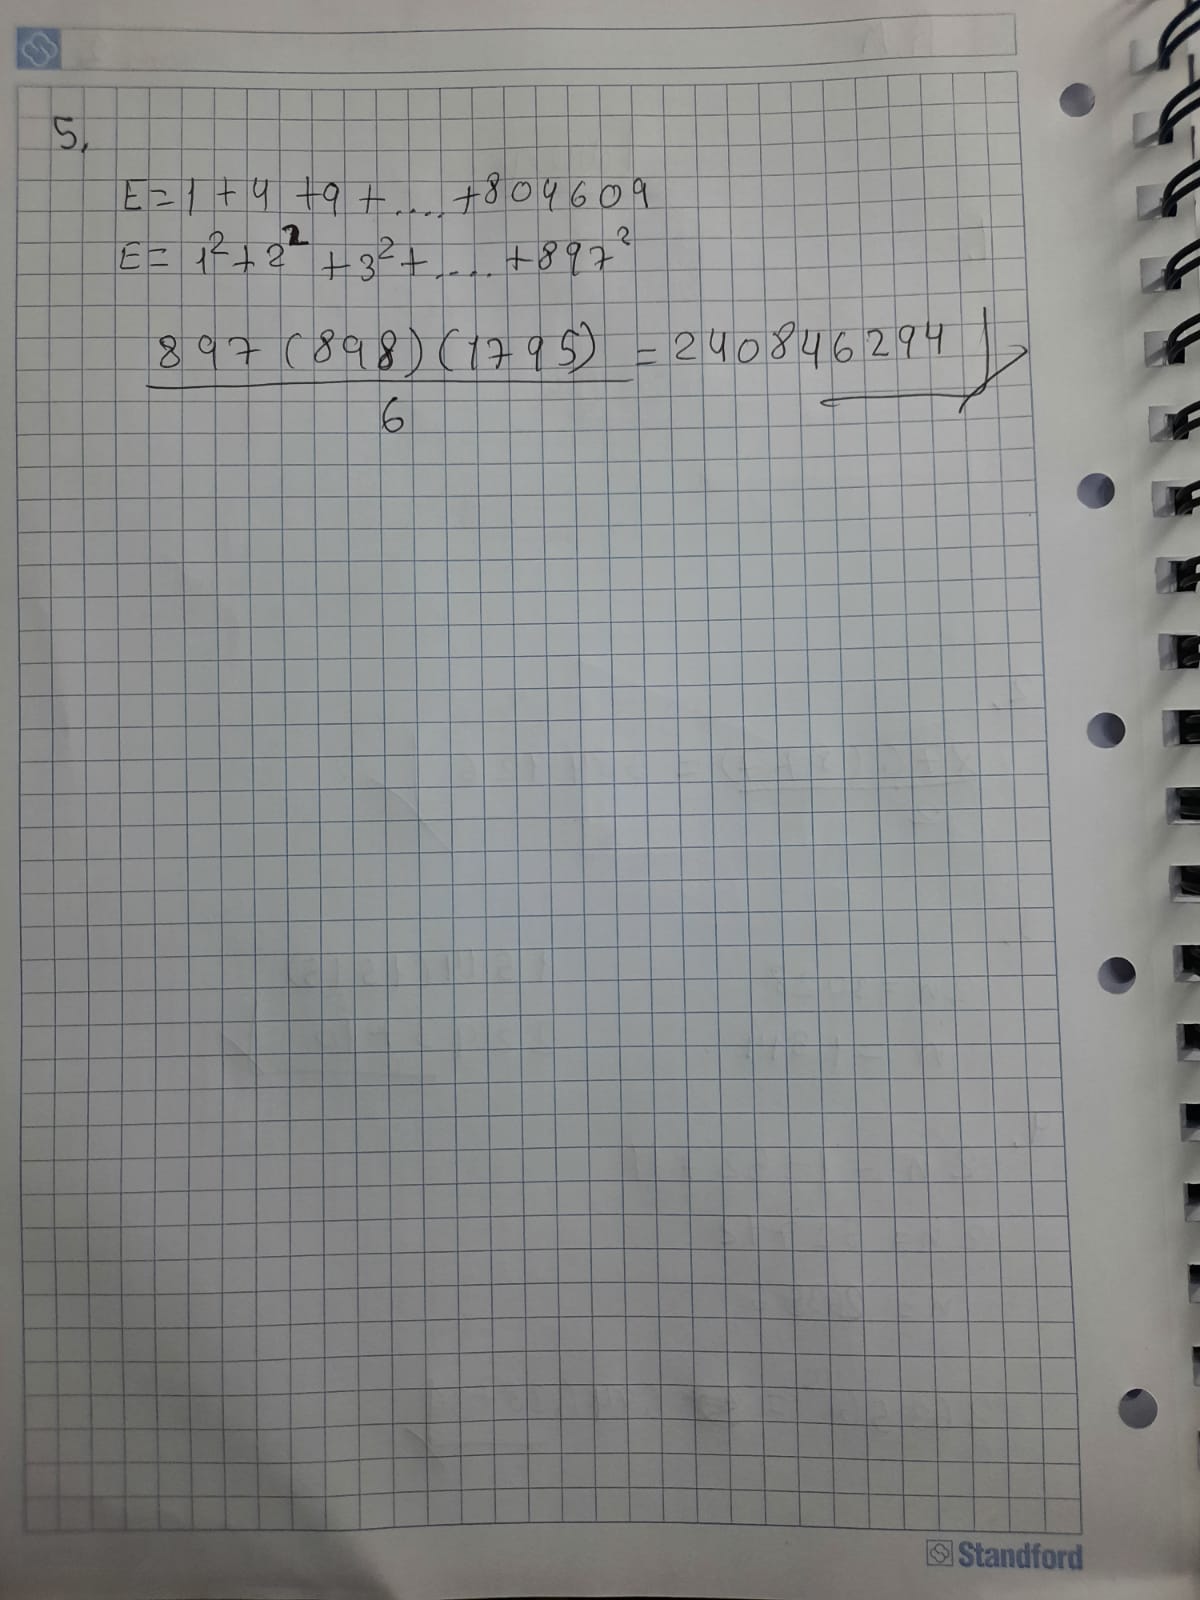 5.
E=1+4+9+....+804609
E= 1²+2²+3²+....+897²
897(898)(1795) = 240846294
6
Standford